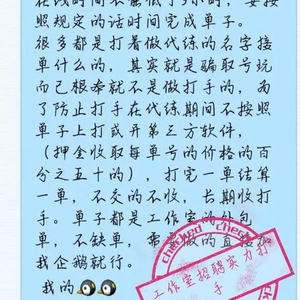 在线时间不能低于5小时，要按
照规定的话时间完成单子。
很多都是打着做代练的名字接
单什么的，其实就是骗取号玩
而已根本就不是做打手的，为
了防止打手在代练期间不按照
单子上打或开第三方软件，
（押金收取每单号的价格的百
分之五十的），打完一单结算
一单，不交的不收，长期收打
手。单子都是工作室的外包
单，不缺单，需要做的直接加
我企鹅就行。
我的
checked
工作室招聘实力打
手